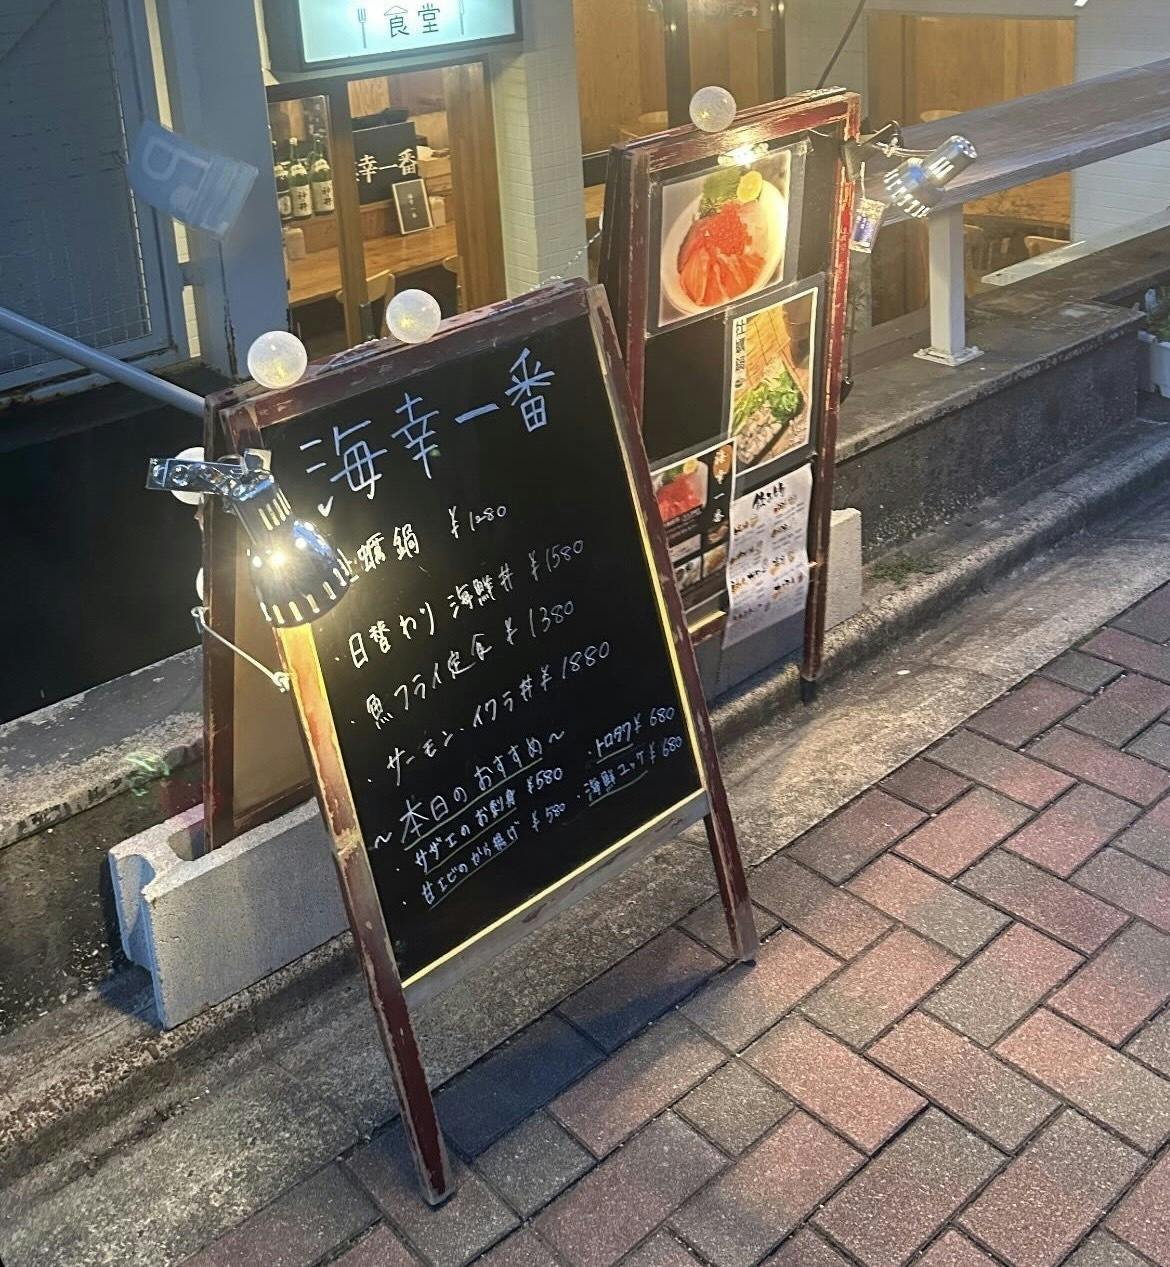 食堂
幸一番
海幸一番
牡蠣鍋 ¥1280
・日替わり 海鮮丼 ¥1580
・魚フライ定食 ¥1380
・サーモン・イクラ丼 ¥1880
～本日のおすすめ～
・サザエのお刺身 ¥580
・甘エビのから揚げ ¥580
・トロタク ¥680
・海鮮ユッケ ¥680
牡蠣鍋
海幸一番